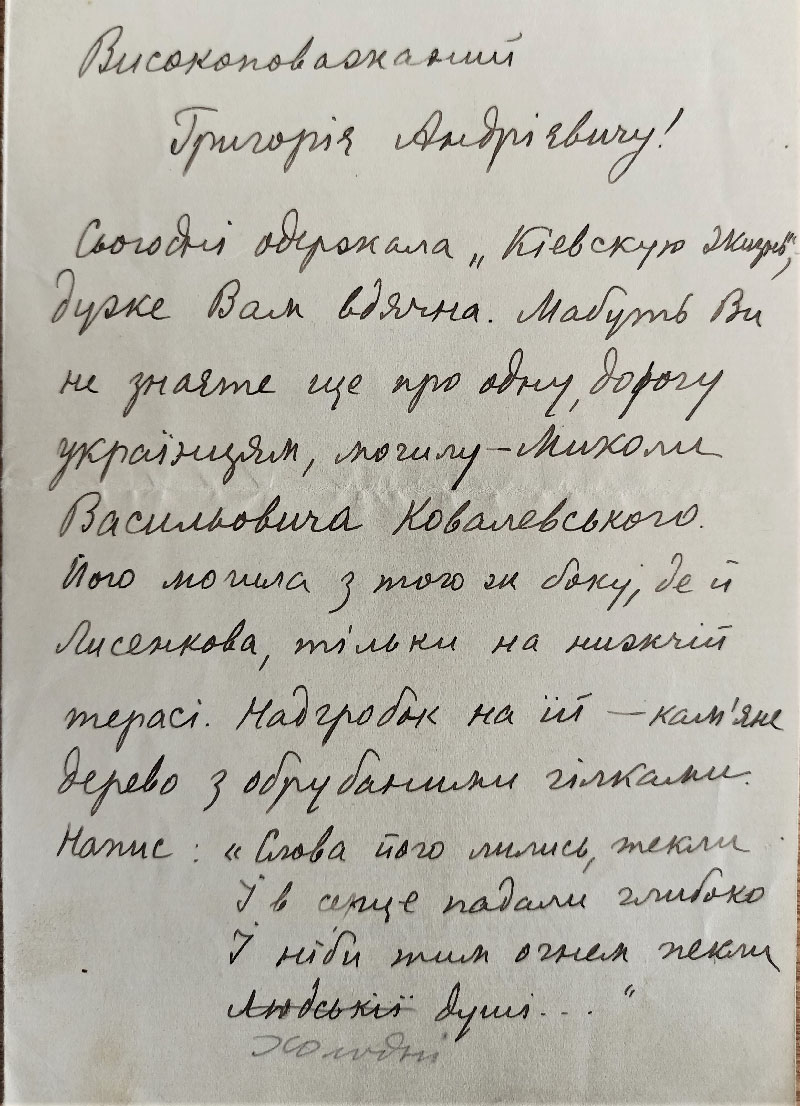 Високоповажаний
Григорія Андрієвичу!
Сьогодні одержала „Кіевскую Жизнь“,
дуже Вам вдячна. Мабуть Ви
не знаєте ще про одну, дорогу
українцям, могилу – Миколи
Васильовича Ковалевського.
Його могила з того ж боку, де й
Лисенкова, тільки на нижчій
терасі. Надгробок на їй — кам'яне
дерево з обрубаними гілками.
Напис : „Слова його лились, текли
І в серце падали глибоко
І ніби тим огнем пекли
Людськії душі... “
Холодні